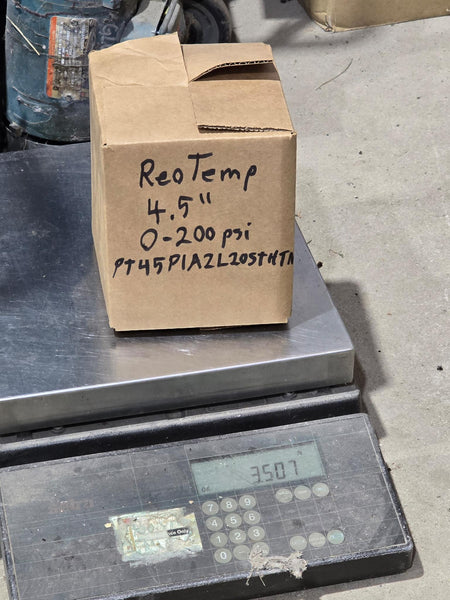 ReoTemp
4.5"
0-200 psi
PT45P1A2L20STHTN
3.507
7 8 9
4 5 6
1 2 3
0